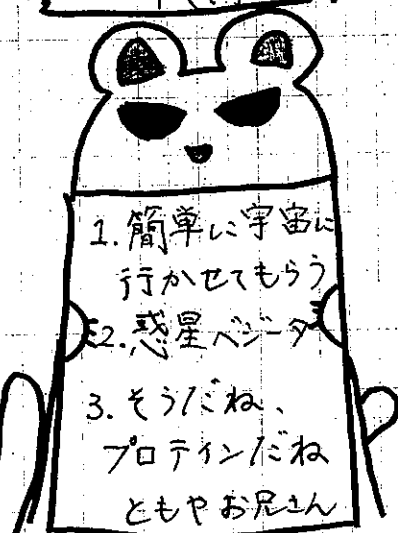 1. 簡単に宇宙に
行かせてもらう
2. 惑星ベジータ
3. そうだね、
プロテインだね
ともやお兄さん